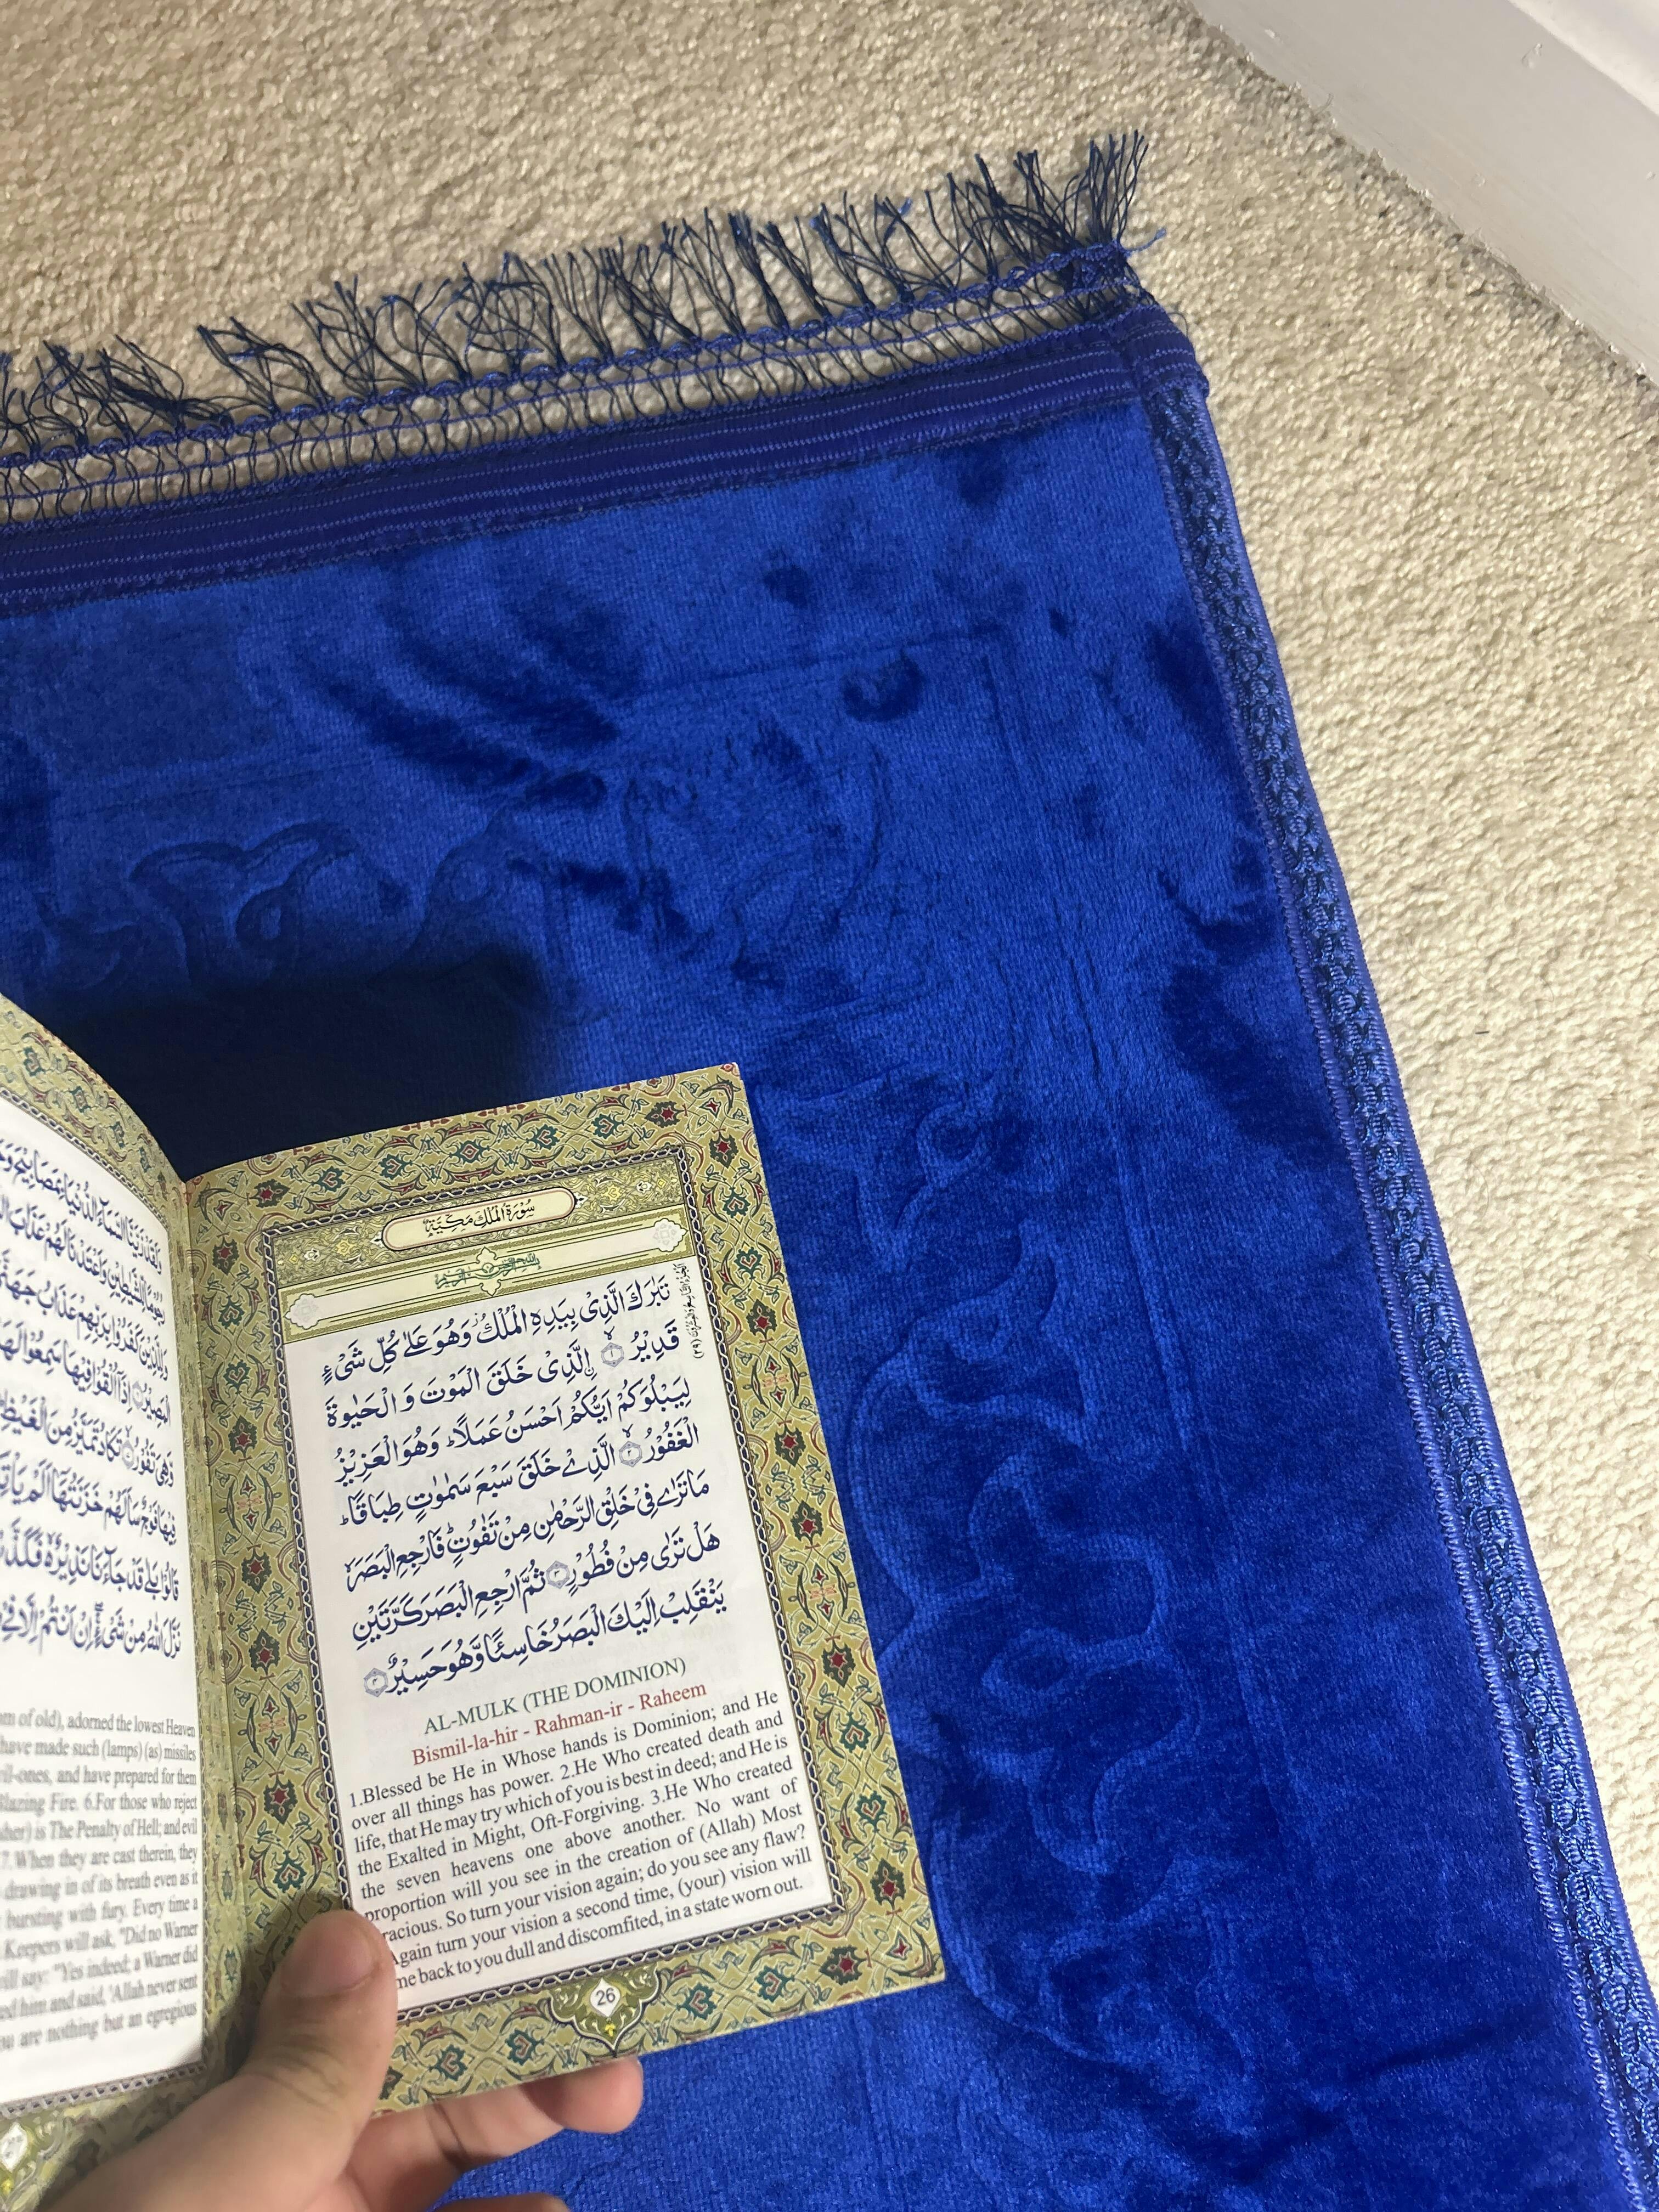 سُوْرَةُ الْمُلْكِ مَكِّيَّةٌ
بِسْمِ اللّٰهِ الرَّحْمٰنِ الرَّحِيْمِ
تَبٰرَكَ الَّذِىْ بِيَدِهِ الْمُلْكُ ز وَهُوَ عَلٰى كُلِّ شَىْءٍ
قَدِيْرُ ۙ﴿۱﴾ اِۨلَّذِىْ خَلَقَ الْمَوْتَ وَ الْحَيٰوةَ
لِيَبْلُوَكُمْ اَيُّكُمْ اَحْسَنُ عَمَلًا ؕ وَهُوَ الْعَزِيْزُ
الْغَفُوْرُ ۙ﴿۲﴾ الَّذِىْ خَلَقَ سَبْعَ سَمٰوٰتٍ طِبَاقًا ؕ
مَا تَرٰى فِىْ خَلْقِ الرَّحْمٰنِ مِنْ تَفٰوُتٍ ؕ فَارْجِعِ الْبَصَرَ ۙ
هَلْ تَرٰى مِنْ فُطُوْرٍ ﴿۳﴾ ثُمَّ ارْجِعِ الْبَصَرَ كَرَّتَيْنِ
يَنْقَلِبْ اِلَيْكَ الْبَصَرُ خَاسِئًا وَّهُوَ حَسِيْرٌ ﴿۴﴾
AL-MULK (THE DOMINION)
Bismil-la-hir - Rahman-ir - Raheem
1.Blessed be He in Whose hands is Dominion; and He
over all things has power. 2.He Who created death and
life, that He may try which of you is best in deed; and He is
the Exalted in Might, Oft-Forgiving. 3.He Who created
the seven heavens one above another. No want of
proportion will you see in the creation of (Allah) Most
racious. So turn your vision again; do you see any flaw?
Again turn your vision a second time, (your) vision will
me back to you dull and discomfited, in a state worn out.
26
وَلَقَدْ زَيَّنَّا السَّمَآءَ الدُّنْيَا بِمَصَابِيْحَ
رُجُوْمًا لِّلشَّيٰطِيْنِ وَاَعْتَدْنَا لَهُمْ عَذَابَ
وَلِلَّذِيْنَ كَفَرُوْا بِرَبِّهِمْ عَذَابُ جَهَنَّمَ
الْمَصِيْرُ اِذَآ اُلْقُوْا فِيْهَا سَمِعُوْا لَهَا
وَّهِىَ تَفُوْرُ تَكَادُ تَمَيَّزُ مِنَ الْغَيْظِ
فِيْهَا فَوْجٌ سَاَلَهُمْ خَزَنَتُهَآ اَلَمْ يَاْتِ
قَالُوْا بَلٰى قَدْ جَآءَنَا نَذِيْرٌ
نَزَّلَ اللّٰهُ مِنْ شَىْءٍ اِنْ اَنْتُمْ اِلَّا فِىْ
of old), adorned the lowest Heaven
have made such (lamps) (as) missiles
il-ones, and have prepared for them
lazing Fire. 6.For those who reject
is The Penalty of Hell; and evil
7.When they are cast therein, they
drawing in of its breath even as it
bursting with fury. Every time a
Keepers will ask, "Did no Warner
ill say: "Yes indeed; a Warner did
ed him and said, 'Allah never sent
ou are nothing but an egregious